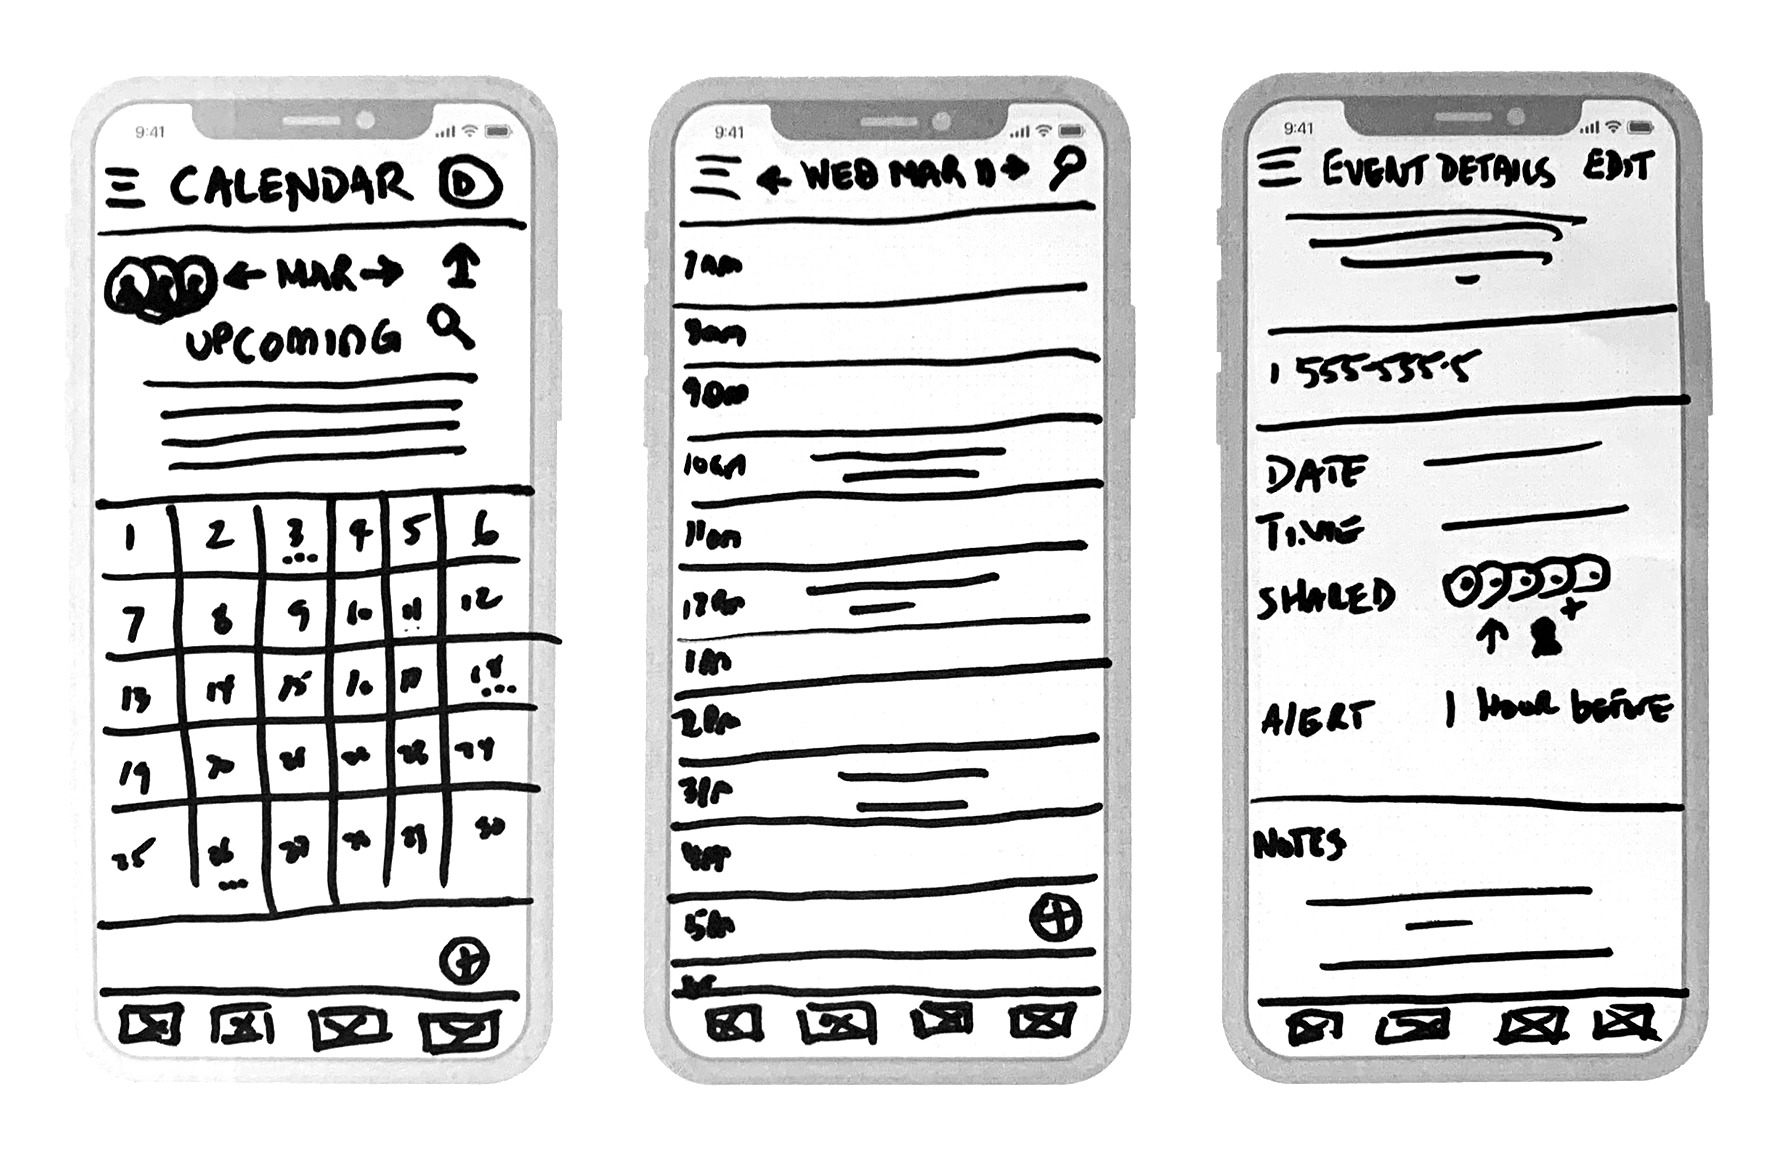 9:41
CALENDAR D
← MAR →
UPCOMING
1 2 3 4 5 6
7 8 9 10 11 12
13 14 15 17 18
19 20 24
25 26 27 29 30
9:41
← WED MAR 11 →
7am
8am
9am
10am
11am
12pm
1pm
2pm
3pm
4pm
5pm
9:41
EVENT DETAILS EDIT
1 555-555-5
DATE
TIME
SHARED
+
AlERT 1 Hour before
NOTES